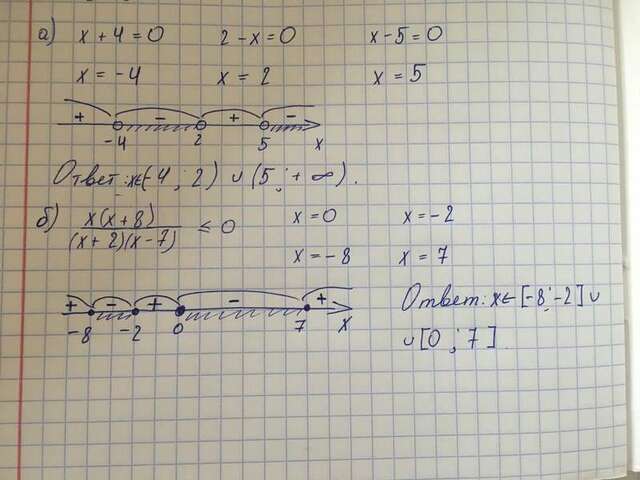 а) x + 4 = 0 2 - x = 0 x - 5 = 0
x = -4 x = 2 x = 5
+ - + -
-4 2 5 x
Ответ: x∈(-4; 2) ∪ (5; +∞).
б) x(x+8)/(x+2)(x-7) ≤ 0 x = 0 x = -2
x = -8 x = 7
+ - + - +
-8 -2 0 7 x
Ответ: x∈[-8; -2] ∪
∪ [0; 7]